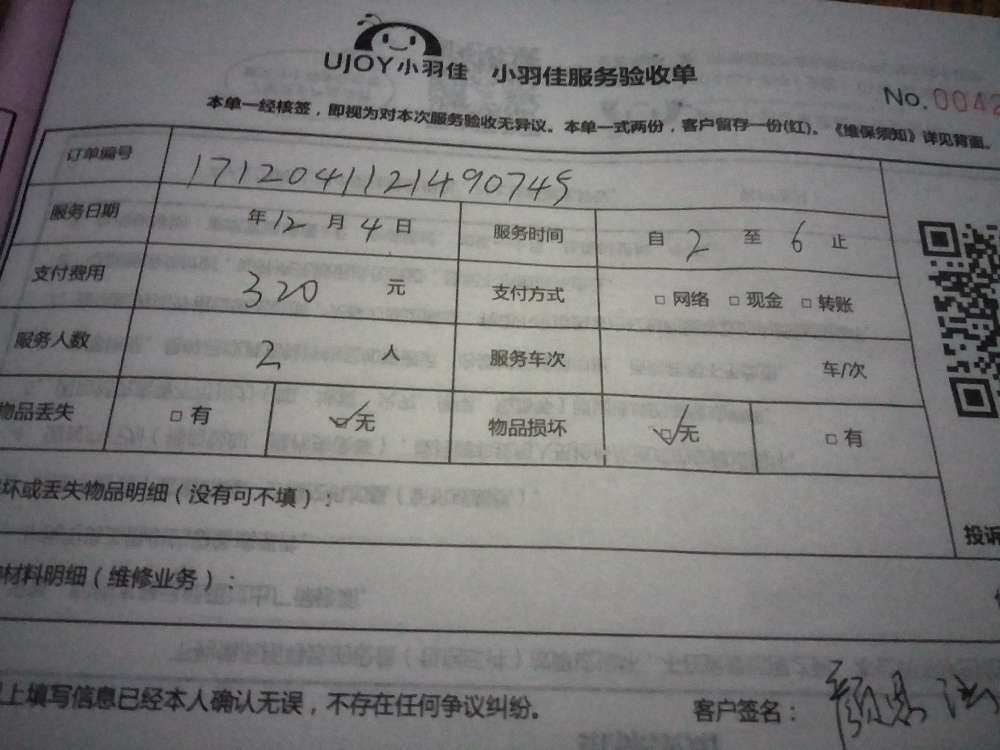 UJOY小羽佳 小羽佳服务验收单
No.0042
本单一经核签，即视为对本次服务验收无异议。本单一式两份，客户留存一份(红)。《维保须知》详见背面。
订单编号 171204112149074​5
服务日期 年12月4日 服务时间 自2至6止
支付费用 320元 支付方式 □网络 □现金 □转账
服务人数 2人 服务车次 车/次
物品丢失 □有 ☑无 物品损坏 ☑无 □有
坏或丢失物品明细（没有可不填）：
投诉
材料明细（维修业务）：
上填写信息已经本人确认无误，不存在任何争议纠纷。 客户签名：